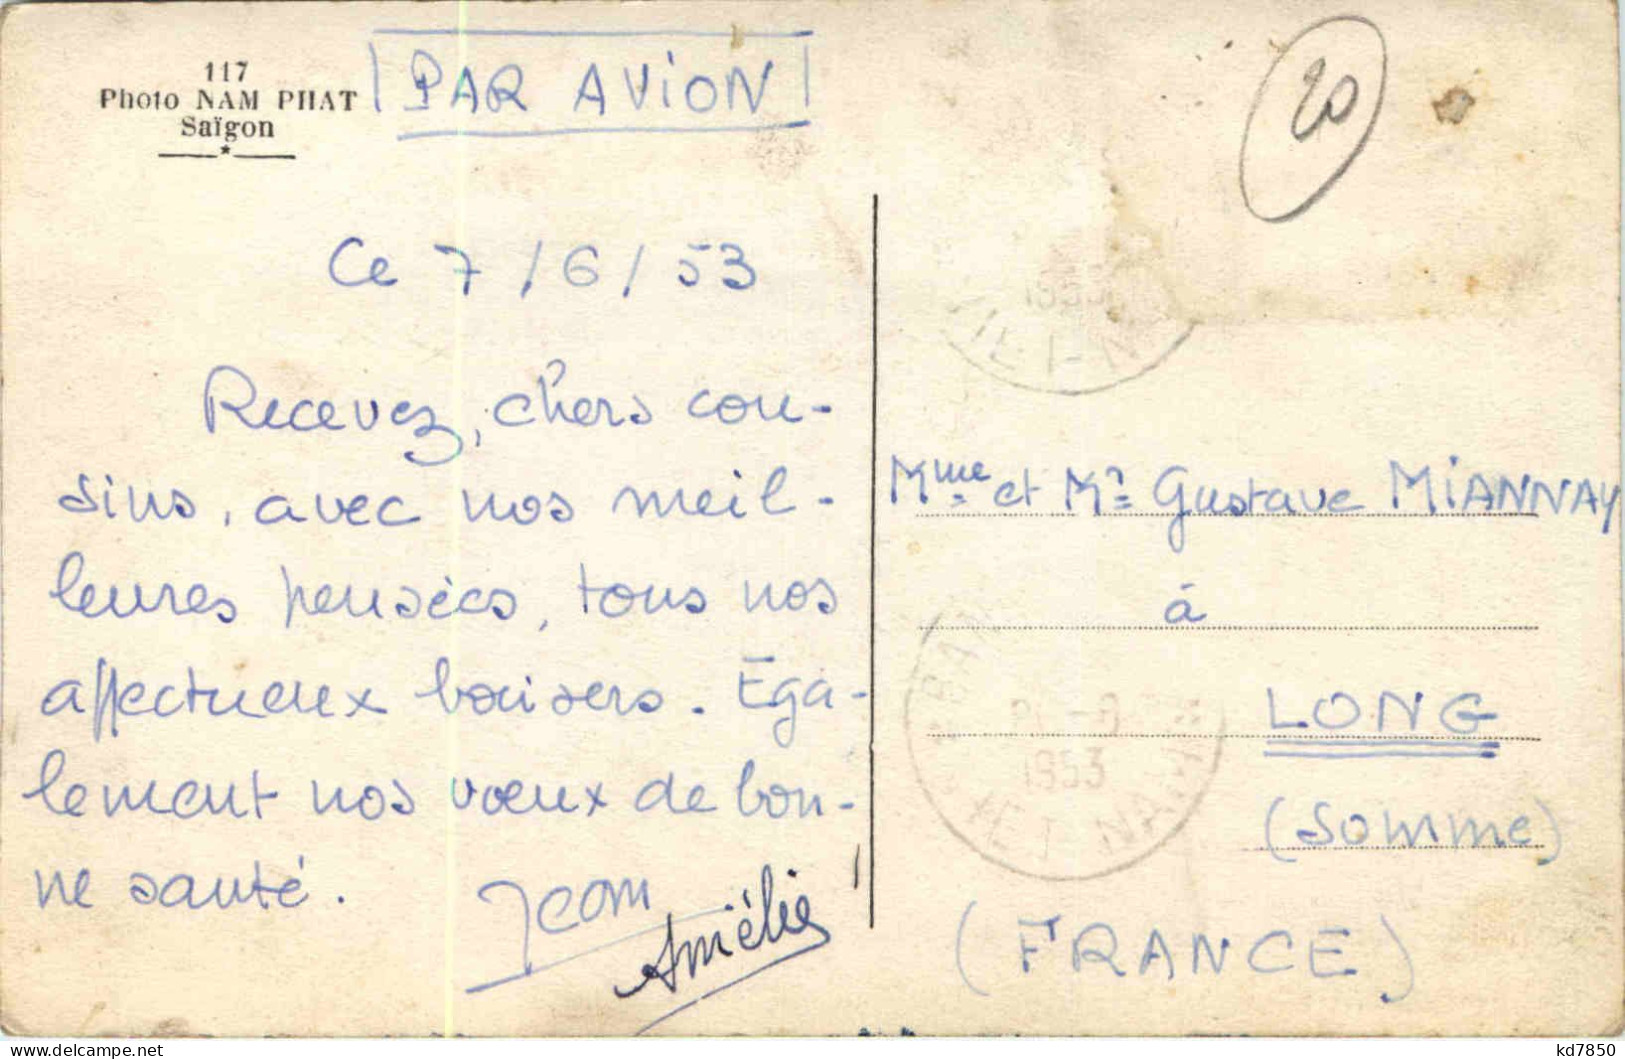 117
Photo NAM PHAT
Saïgon
PAR AVION
20
Ce 7/6/53
Recevez, chers cou-
sins, avec nos meil-
leures pensées, tous nos
affectueux baisers. Éga-
lement nos vœux de bon-
ne santé.
Jean
Amélie
1953
Mme et Mr Gustave MIANNAY
à
LONG
(Somme)
(FRANCE)
1953
VIET-NAM
kd7850